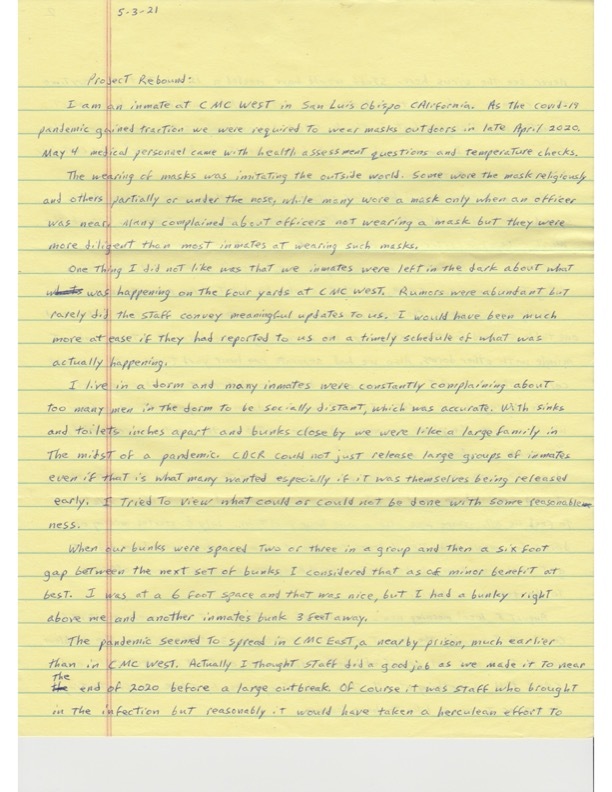 5-3-21
Project Rebound:
I am an inmate at CMC West in San Luis Obispo California. As the covid-19
pandemic gained traction we were required to wear masks outdoors in late April 2020.
May 4 medical personnel came with health assessment questions and temperature checks.
The wearing of masks was imitating the outside world. Some wore the mask religiously
and others partially or under the nose, while many wore a mask only when an officer
was near. Many complained about officers not wearing a mask but they were
more diligent than most inmates at wearing such masks.
One thing I did not like was that we inmates were left in the dark about what
was happening on the four yards at CMC West. Rumors were abundant but
rarely did the staff convey meaningful updates to us. I would have been much
more at ease if they had reported to us on a timely schedule of what was
actually happening.
I live in a dorm and many inmates were constantly complaining about
too many men in the dorm to be socially distant, which was accurate. With sinks
and toilets inches apart and bunks close by we were like a large family in
the midst of a pandemic. CDCR could not just release large groups of inmates
even if that is what many wanted especially if it was themselves being released
early. I tried to view what could or could not be done with some reasonable-
ness.
When our bunks were spaced two or three in a group and then a six foot
gap between the next set of bunks I considered that as of minor benefit at
best. I was at a 6 foot space and that was nice, but I had a bunky right
above me and another inmates bunk 3 feet away.
The pandemic seemed to spread in CMC East, a nearby prison, much earlier
than in CMC West. Actually I thought staff did a good job as we made it to near
the end of 2020 before a large outbreak. Of course it was staff who brought
in the infection but reasonably it would have taken a herculean effort to